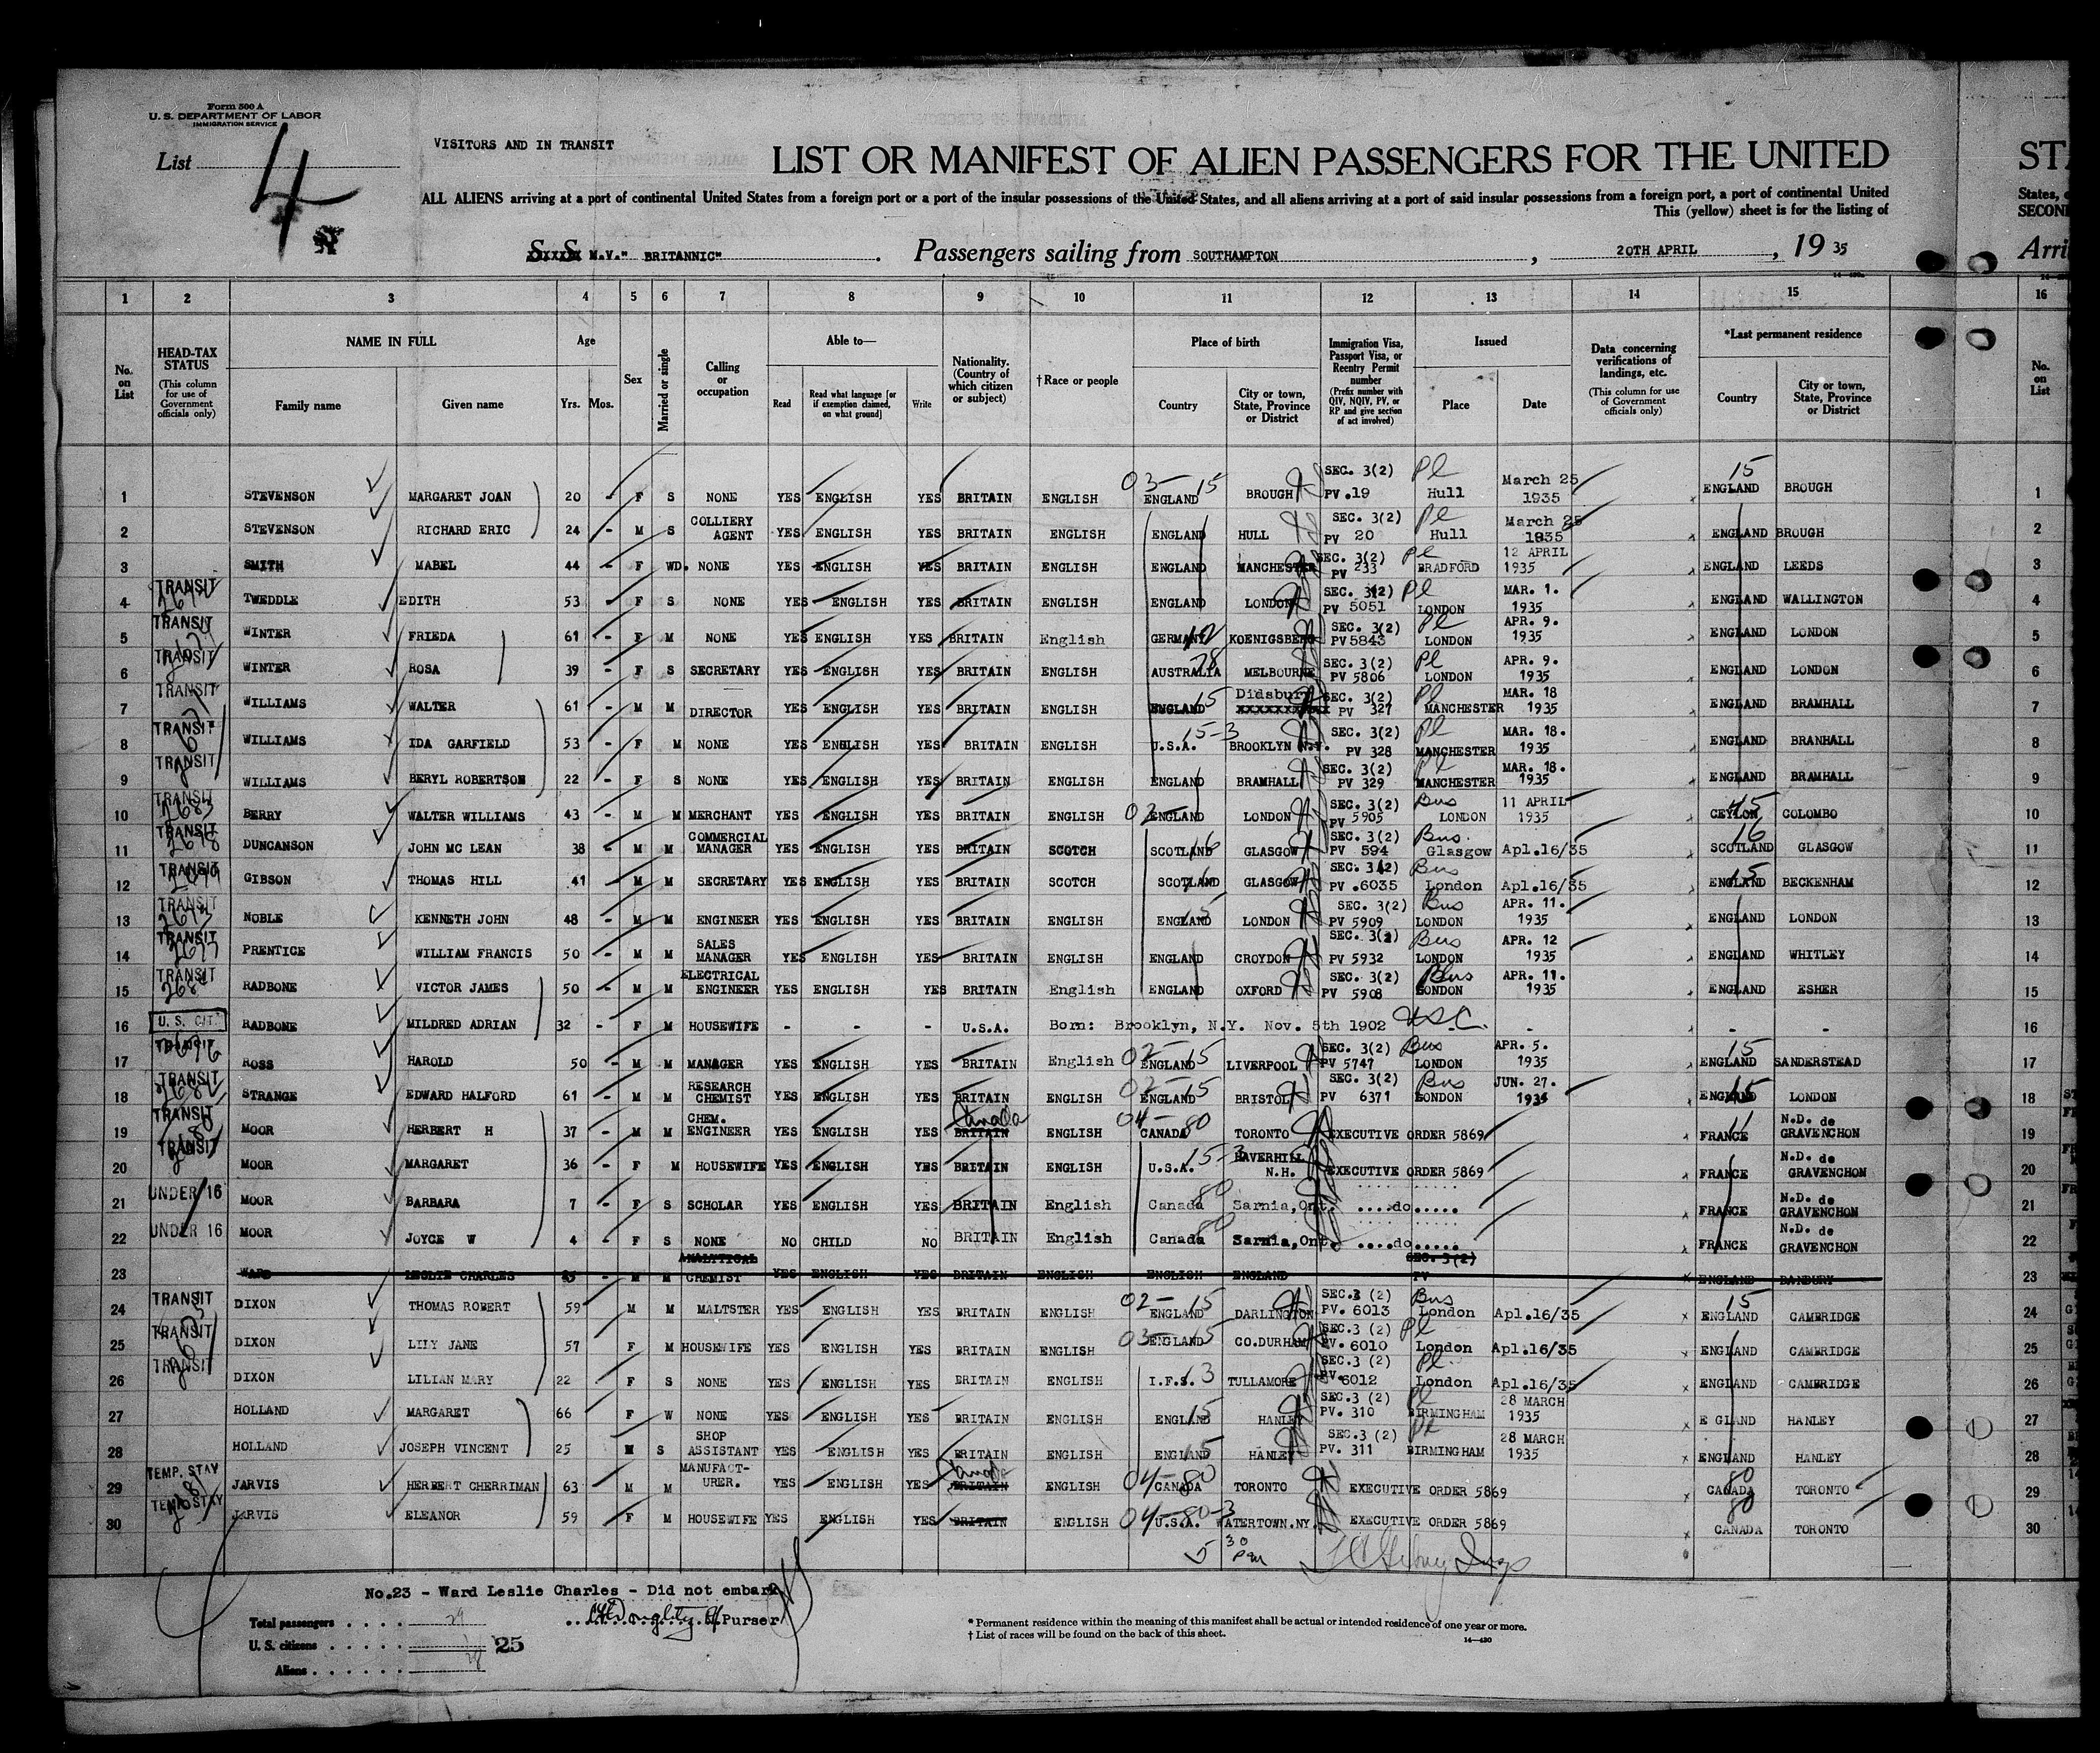 Form 500 A
U. S. DEPARTMENT OF LABOR
IMMIGRATION SERVICE
List 4
VISITORS AND IN TRANSIT
LIST OR MANIFEST OF ALIEN PASSENGERS FOR THE UNITED STA
ALL ALIENS arriving at a port of continental United States from a foreign port or a port of the insular possessions of the United States, and all aliens arriving at a port of said insular possessions from a foreign port, a port of continental United States,
This (yellow) sheet is for the listing of SECON
S S M.V." BRITANNIC" . Passengers sailing from SOUTHAMPTON , 20TH APRIL , 19 35 Arri
1 2 3 4 5 6 7 8 9 10 11 12 13 14 15 16
No. on List
HEAD-TAX STATUS (This column for use of Government officials only)
NAME IN FULL Family name Given name
Age Yrs. Mos.
Sex
Married or single
Calling or occupation
Able to— Read Read what language [or if exemption claimed, on what ground] Write
Nationality. (Country of which citizen or subject)
† Race or people
Place of birth Country City or town, State, Province or District
Immigration Visa, Passport Visa, or Reentry Permit number (Prefix number with QIV, NQIV, PV, or RP and give section of act involved)
Issued Place Date
Data concerning verifications of landings, etc. (This column for use of Government officials only)
*Last permanent residence Country City or town, State, Province or District
No. on List
1 STEVENSON MARGARET JOAN 20 - F S NONE YES ENGLISH YES BRITAIN ENGLISH 03- ENGLAND 15 BROUGH SEC. 3(2) PV .19 Pl Hull March 25 1935 15 ENGLAND BROUGH 1
2 STEVENSON RICHARD ERIC 24 - M S COLLIERY AGENT YES ENGLISH YES BRITAIN ENGLISH ENGLAND HULL SEC. 3(2) PV 20 Pl Hull March 25 1935 ENGLAND BROUGH 2
3 SMITH MABEL 44 - F WD. NONE YES ENGLISH YES BRITAIN ENGLISH ENGLAND MANCHESTER SEC. 3(2) PV 233 Pl BRADFORD 12 APRIL 1935 ENGLAND LEEDS 3
4 TRANSIT TWEDDLE EDITH 53 - F S NONE YES ENGLISH YES BRITAIN ENGLISH ENGLAND LONDON SEC. 3(2) PV 5051 Pl LONDON MAR. 1. 1935 ENGLAND WALLINGTON 4
5 TRANSIT WINTER FRIEDA 61 - F M NONE YES ENGLISH YES BRITAIN English GERMANY 12 KOENIGSBERG SEC. 3(2) PV 5843 Pl LONDON APR. 9. 1935 ENGLAND LONDON 5
6 TRANSIT WINTER ROSA 39 - F S SECRETARY YES ENGLISH YES BRITAIN ENGLISH AUSTRALIA 78 MELBOURNE SEC. 3(2) PV 5806 Pl LONDON APR. 9. 1935 ENGLAND LONDON 6
7 TRANSIT WILLIAMS WALTER 61 - M M DIRECTOR YES ENGLISH YES BRITAIN ENGLISH ENGLAND 15 Didsbury SEC. 3(2) PV 327 Pl MANCHESTER MAR. 18 1935 ENGLAND BRAMHALL 7
8 TRANSIT WILLIAMS IDA GARFIELD 53 - F M NONE YES ENGLISH YES BRITAIN ENGLISH U.S.A. 15-3 BROOKLYN N.Y. SEC. 3(2) PV 328 Pl MANCHESTER MAR. 18. 1935 ENGLAND BRANHALL 8
9 TRANSIT WILLIAMS BERYL ROBERTSON 22 - F S NONE YES ENGLISH YES BRITAIN ENGLISH ENGLAND BRAMHALL SEC. 3(2) PV 329 Pl MANCHESTER MAR. 18. 1935 ENGLAND BRAMHALL 9
10 TRANSIT BERRY WALTER WILLIAMS 43 - M M MERCHANT YES ENGLISH YES BRITAIN ENGLISH 02 ENGLAND LONDON SEC. 3(2) PV 5905 Bus LONDON 11 APRIL 1935 CEYLON COLOMBO 10
11 TRANSIT 2678 DUNCANSON JOHN MC LEAN 38 - M M COMMERCIAL MANAGER YES ENGLISH YES BRITAIN SCOTCH SCOTLAND 16 GLASGOW SEC. 3(2) PV 594 Bus. Glasgow Apl.16/35 16 SCOTLAND GLASGOW 11
12 TRANSIT GIBSON THOMAS HILL 41 - M M SECRETARY YES ENGLISH YES BRITAIN SCOTCH SCOTLAND GLASGOW SEC. 3(2) PV .6035 Bus London Apl.16/35 15 ENGLAND BECKENHAM 12
13 TRANSIT NOBLE KENNETH JOHN 48 - M M ENGINEER YES ENGLISH YES BRITAIN ENGLISH ENGLAND 15 LONDON SEC. 3(2) PV 5909 Bus LONDON APR. 11. 1935 ENGLAND LONDON 13
14 TRANSIT 2677 PRENTICE WILLIAM FRANCIS 50 - M M SALES MANAGER YES ENGLISH YES BRITAIN ENGLISH ENGLAND CROYDON SEC. 3(2) PV 5932 Bus LONDON APR. 12 1935 ENGLAND WHITLEY 14
15 TRANSIT RADBONE VICTOR JAMES 50 - M M ELECTRICAL ENGINEER YES ENGLISH YES BRITAIN English ENGLAND OXFORD SEC. 3(2) PV 5908 Bus LONDON APR. 11. 1935 ENGLAND ESHER 15
16 U. S. CIT. RADBONE MILDRED ADRIAN 32 - F M HOUSEWIFE - - - U.S.A. Born: Brooklyn, N.Y. Nov. 5th 1902 USC. - - - 16
17 2676 ROSS HAROLD 50 - M M MANAGER YES ENGLISH YES BRITAIN English 02- ENGLAND 15 LIVERPOOL SEC. 3(2) PV 5747 Bus LONDON APR. 5. 1935 15 ENGLAND SANDERSTEAD 17
18 TRANSIT STRANGE EDWARD HALFORD 61 - M M RESEARCH CHEMIST YES ENGLISH YES BRITAIN ENGLISH 02- ENGLAND 15 BRISTOL SEC. 3(2) PV 6371 Bus LONDON JUN. 27. 1934 15 ENGLAND LONDON 18
19 TRANSIT MOOR HERBERT H 37 - M M CHEM. ENGINEER YES ENGLISH YES BRITAIN Canada ENGLISH 04- CANADA 80 TORONTO EXECUTIVE ORDER 5869 FRANCE N.D. de GRAVENCHON 19
20 TRANSIT MOOR MARGARET 36 - F M HOUSEWIFE YES ENGLISH YES BRITAIN ENGLISH U.S.A. 15-3 HAVERHILL N.H. EXECUTIVE ORDER 5869 FRANCE N.D. de GRAVENCHON 20
21 UNDER 16 MOOR BARBARA 7 - F S SCHOLAR YES ENGLISH YES BRITAIN English Canada 80 Sarnia,Ont. ....do..... FRANCE N.D. de GRAVENCHON 21
22 UNDER 16 MOOR JOYCE W 4 - F S NONE NO CHILD NO BRITAIN English Canada 80 Sarnia,Ont. ....do..... FRANCE N.D. de GRAVENCHON 22
23 WARD LESLIE CHARLES - M M ANALYTICAL CHEMIST YES ENGLISH YES BRITAIN ENGLISH ENGLISH ENGLAND SEC. 3(2) PV ENGLAND BANBURY 23
24 TRANSIT DIXON THOMAS ROBERT 59 M M MALTSTER YES ENGLISH YES BRITAIN ENGLISH 02- ENGLAND 15 DARLINGTON SEC.3 (2) PV. 6013 Bus London Apl.16/35 15 ENGLAND CAMBRIDGE 24
25 TRANSIT DIXON LILY JANE 57 F M HOUSEWIFE YES ENGLISH YES BRITAIN ENGLISH 03- ENGLAND 15 CO.DURHAM SEC.3 (2) PV. 6010 Pl London Apl.16/35 ENGLAND CAMBRIDGE 25
26 TRANSIT DIXON LILIAN MARY 22 F S NONE YES ENGLISH YES BRITAIN ENGLISH I.F.S. 3 TULLAMORE SEC.3 (2) PV.6012 Pl. London Apl.16/35 ENGLAND CAMBRIDGE 26
27 HOLLAND MARGARET 66 F W NONE YES ENGLISH YES BRITAIN ENGLISH ENGLAND 15 HANLEY SEC.3 (2) PV. 310 Pl BIRMINGHAM 28 MARCH 1935 E GLAND HANLEY 27
28 HOLLAND JOSEPH VINCENT 25 M S SHOP ASSISTANT YES ENGLISH YES BRITAIN ENGLISH ENGLAND 15 HANLEY SEC.3 (2) PV. 311 Pl BIRMINGHAM 28 MARCH 1935 ENGLAND HANLEY 28
29 TEMP. STAY JARVIS HERBERT CHERRIMAN 63 M M MANUFACT- URER. YES ENGLISH YES BRITAIN Canada ENGLISH 04- CANADA 80 TORONTO EXECUTIVE ORDER 5869 80 CANADA TORONTO 29
30 TEMP. STAY JARVIS ELEANOR 59 F M HOUSEWIFE YES ENGLISH YES BRITAIN ENGLISH 04-80-3 U.S.A. WATERTOWN.NY. EXECUTIVE ORDER 5869 80 CANADA TORONTO 30
5 30 pm
No.23 - Ward Leslie Charles - Did not embark
Purser
Total passengers . . . . 29
U. S. citizens . . . . . 1 25
Aliens . . . . . . 28
* Permanent residence within the meaning of this manifest shall be actual or intended residence of one year or more.
† List of races will be found on the back of this sheet.
14—430